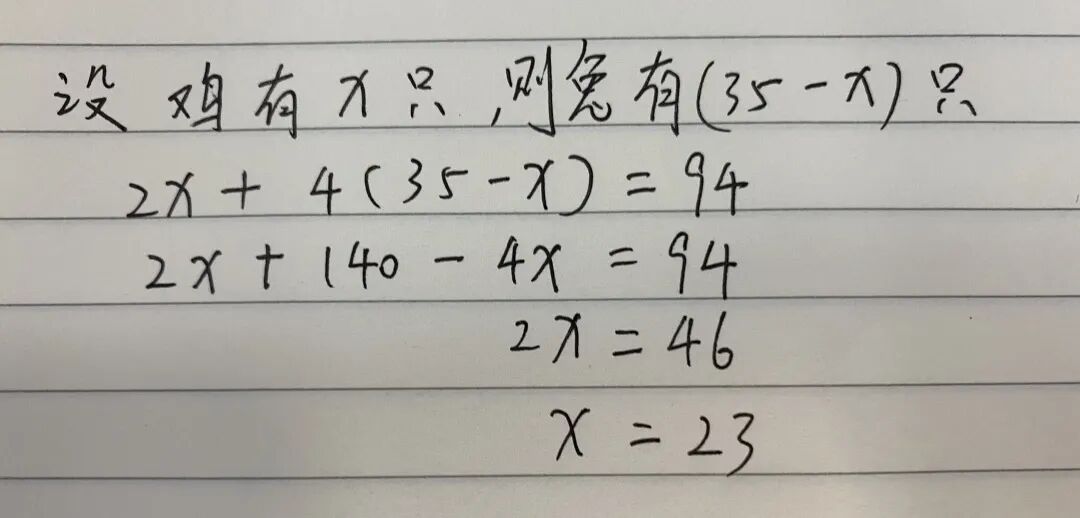 设鸡有x只,则兔有(35-x)只
2x+4(35-x)=94
2x+140-4x=94
2x=46
x=23